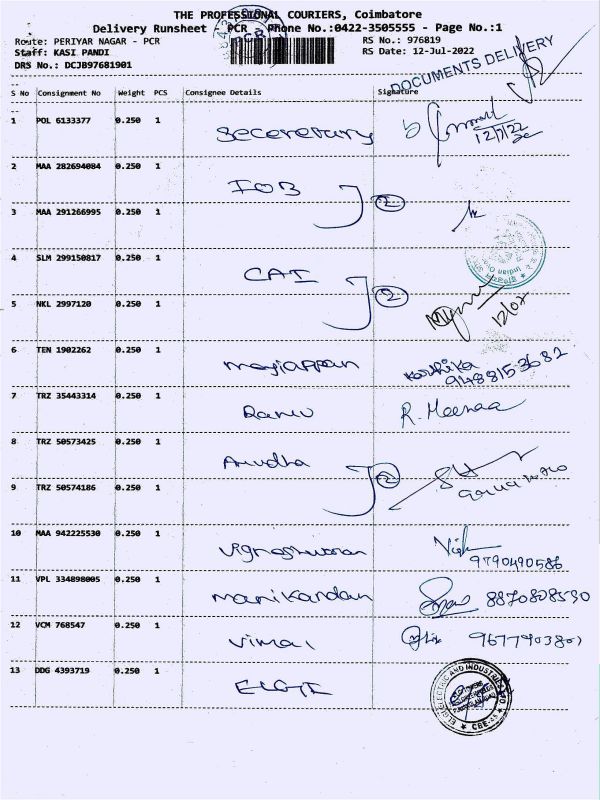 THE PROFESSIONAL COURIERS, Coimbatore
Delivery Runsheet - PCR - Phone No.:0422-3505555 - Page No.:1
Route: PERIYAR NAGAR - PCR RS No.: 976819
Staff: KASI PANDI RS Date: 12-Jul-2022
DRS No.: DCJB97681901
DOCUMENTS DELIVERY
S No Consignment No Weight PCS Consignee Details Signature
1 POL 6133377 0.250 1 Seceretary 12/7/22
2 MAA 282694084 0.250 1 IOB 2
3 MAA 291266995 0.250 1
4 SLM 299150817 0.250 1 CAI 2
5 NKL 2997120 0.250 1 12/07
6 TEN 1902262 0.250 1 meyiappan Karthika
9488153682
7 TRZ 35443314 0.250 1 R. Meenaa
8 TRZ 50573425 0.250 1 Anudha 2
9 TRZ 50574186 0.250 1
10 MAA 942225530 0.250 1 vigneshwaran
9790490586
11 VPL 334898005 0.250 1 manikandan 8870808530
12 VCM 768547 0.250 1 vimal 9677903801
13 DDG 4393719 0.250 1 ELGI
ELGI ELECTRIC AND INDUSTRIES LTD
CBE